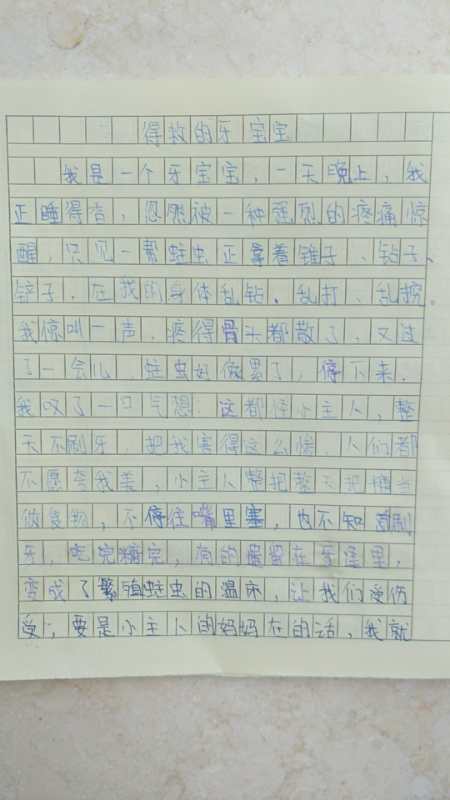 得救的牙宝宝
我是一个牙宝宝，一天晚上，我
正睡得香，忽然被一种强烈的疼痛惊
醒，只见一帮蛀虫正拿着锥子、钻子、
铲子，在我的身体乱钻、乱打、乱挖。
我惊叫一声，疼得骨头都散了，又过
了一会儿，蛀虫好像累了，停下来，
我叹了一口气想：这都怪小主人，整
天不刷牙，把我害得这么惨，人们都
不愿夸我美，小主人整把整天把糖当
做食物，不停往嘴里塞，也不知道刷
牙，吃完糖完，留在牙缝里，
变成了繁殖蛀虫的温床，让我们受伤
受，要是小主人的妈妈在的话，我就